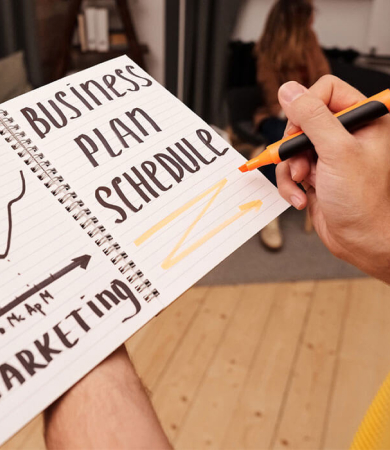 BUSINESS
PLAN
SCHEDULE
Mr Apr M
Marketing